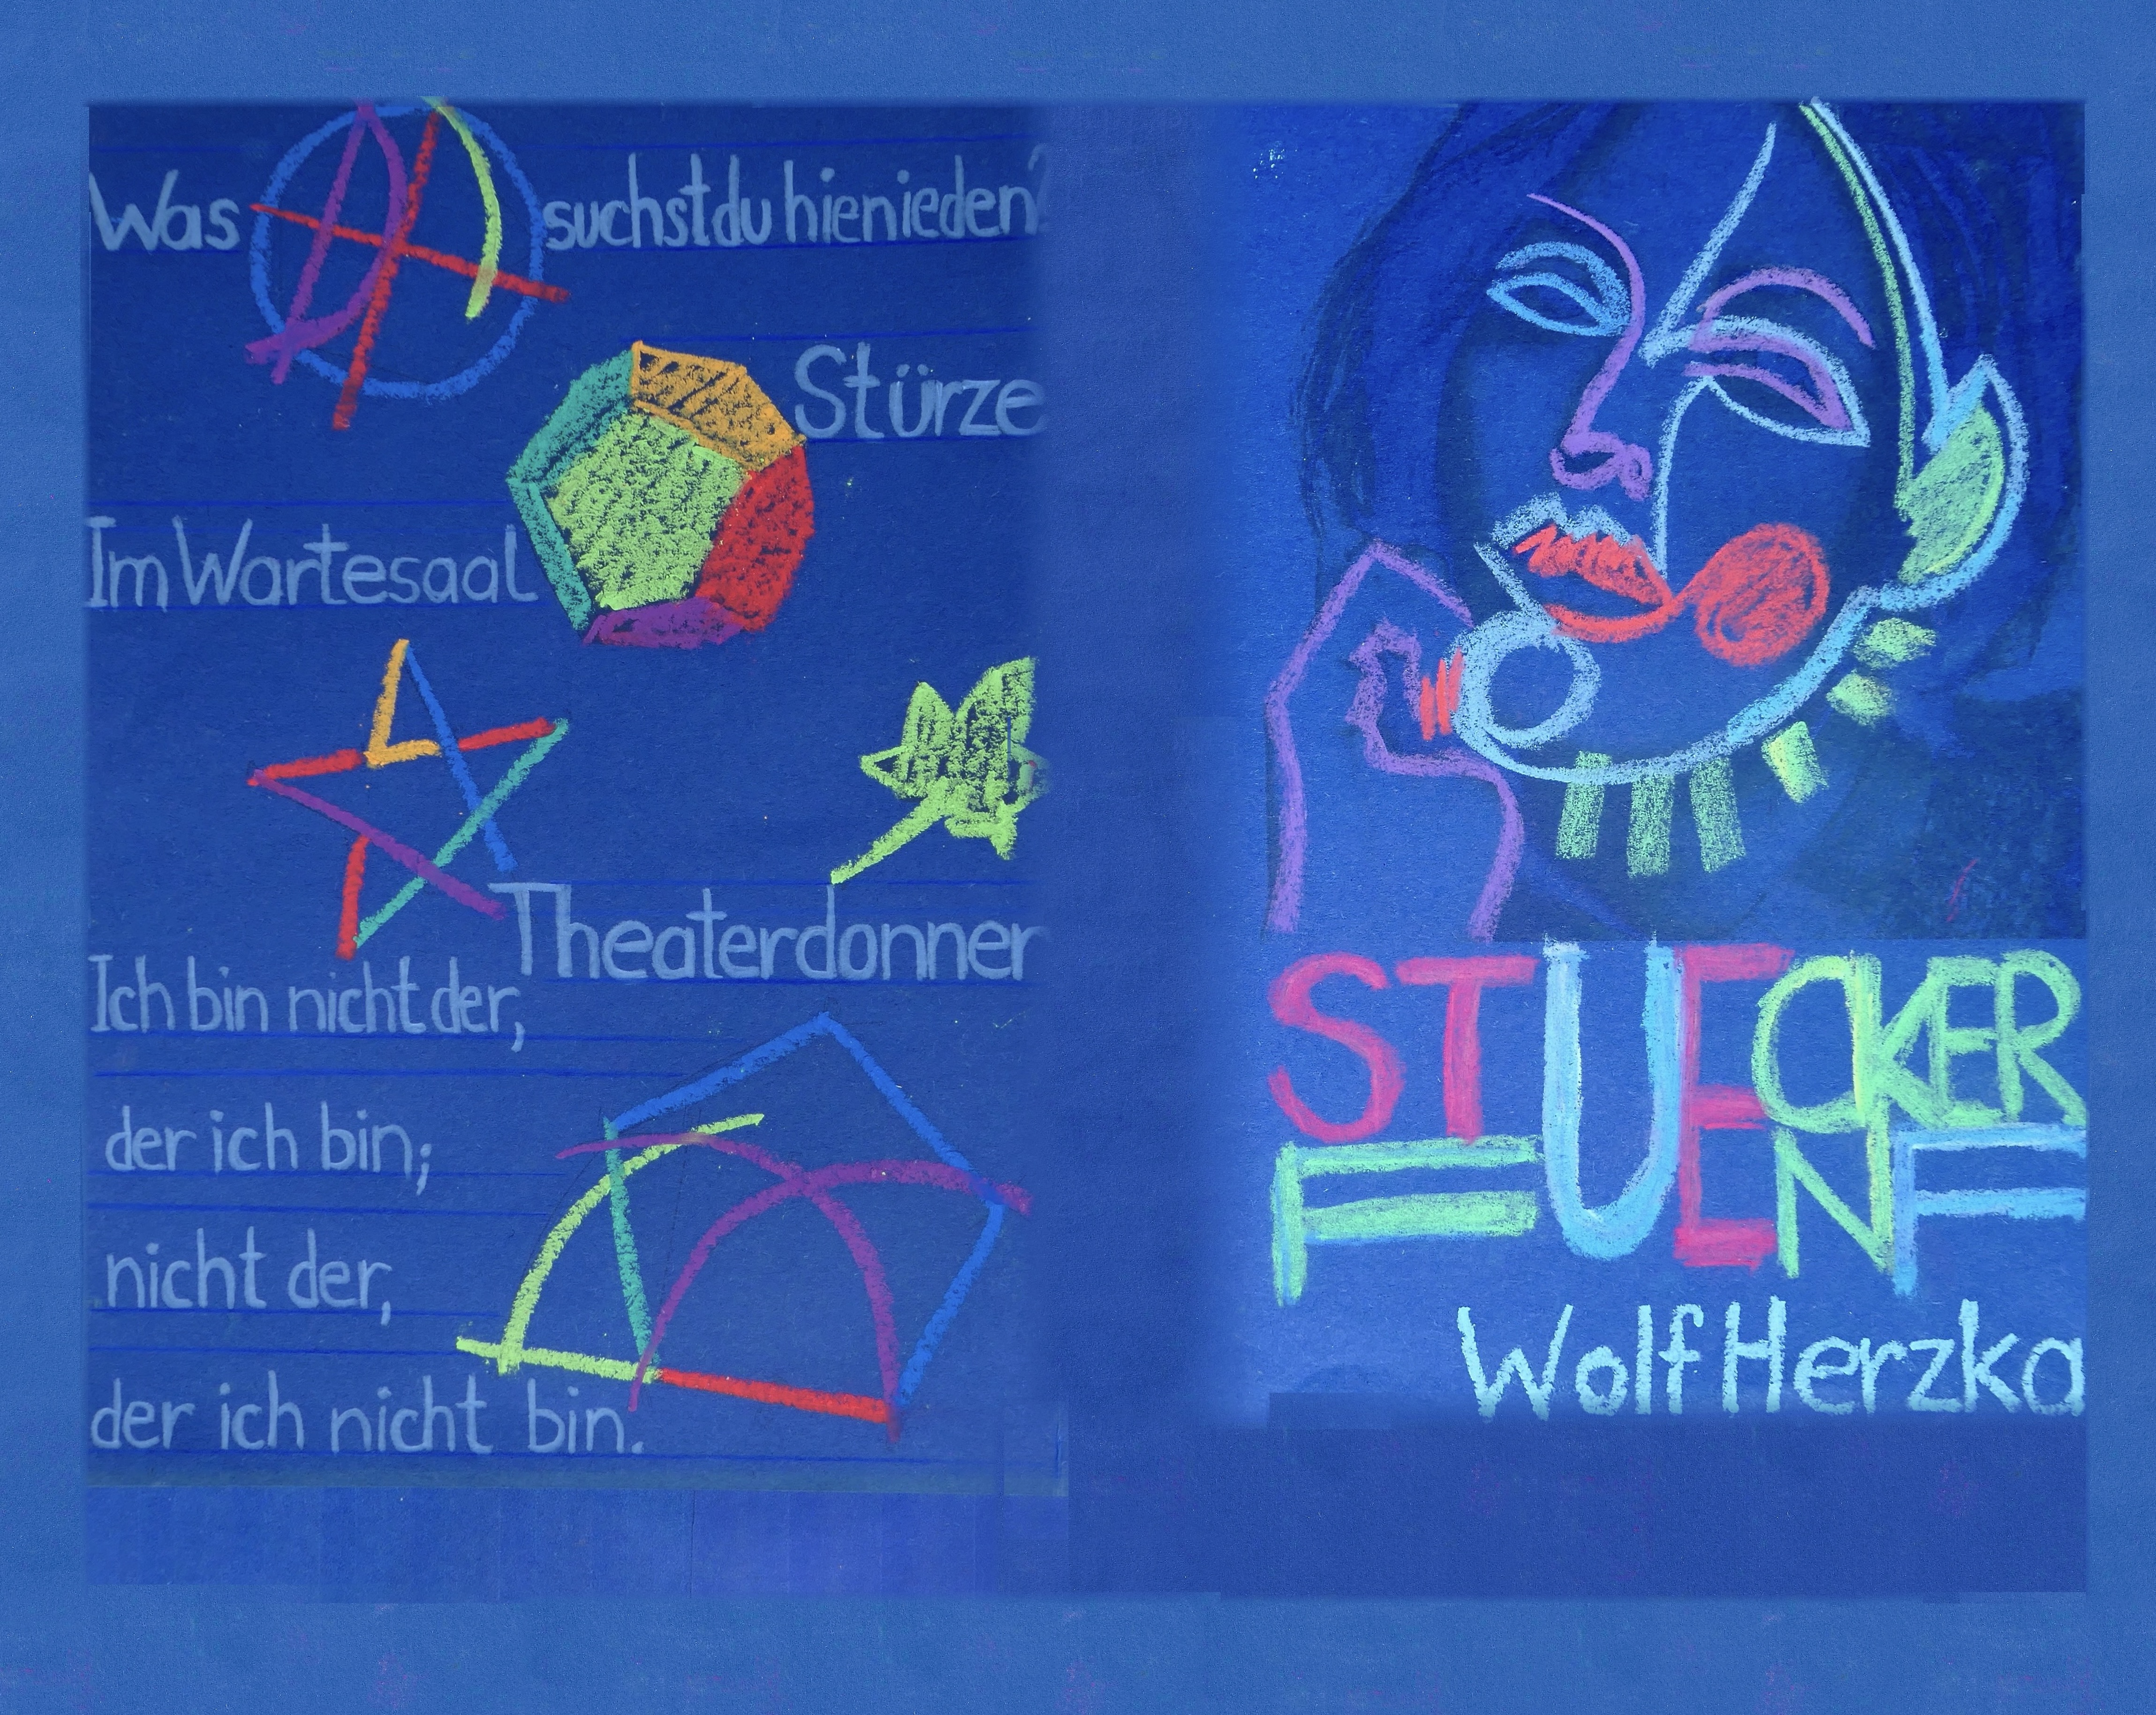 Was suchst du hienieden?
Stürze
Im Wartesaal
Theaterdonner
Ich bin nicht der,
der ich bin;
nicht der,
der ich nicht bin.
STUECKER
FUENF
Wolf Herzka